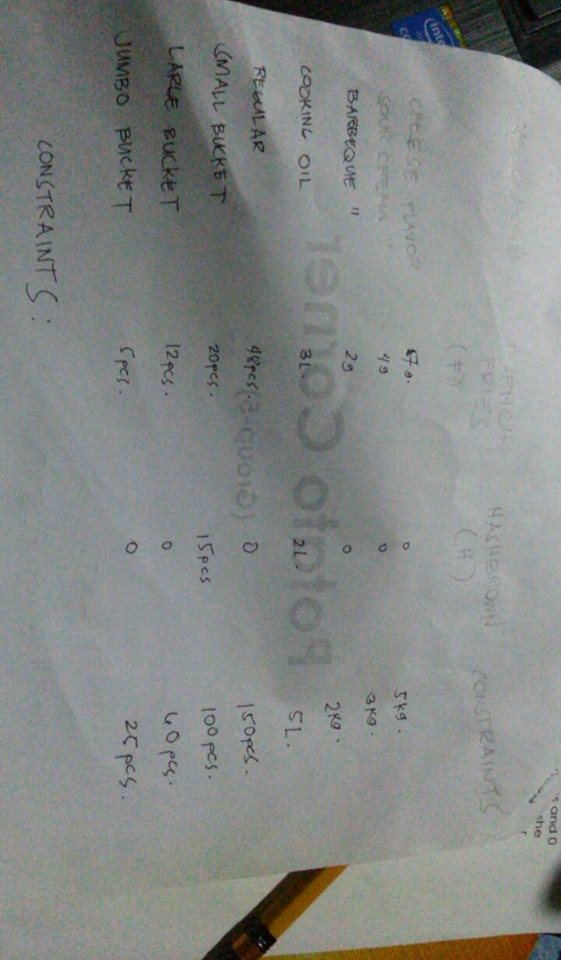 FRENCH FRIES (F) HASHBROWN (H) CONSTRAINTS
CHEESE FLAVOR 7g. 0 5kg.
SOUR CREAM " 4g 0 3kg.
BARBEQUE " 2g 0 2kg.
COOKING OIL 3L. 2L 5L.
REGULAR 48pcs. 0 150pcs.
SMALL BUCKET 20pcs. 15pcs 100pcs.
LARGE BUCKET 12pcs. 0 60pcs.
JUMBO BUCKET 5pcs. 0 25pcs.
CONSTRAINTS:
Potato Corner
(Group-5)
intel
and 0
the